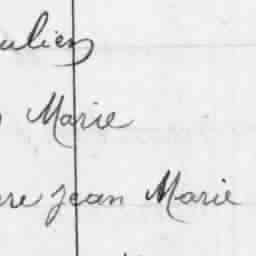 ulien
Marie
re jean Marie